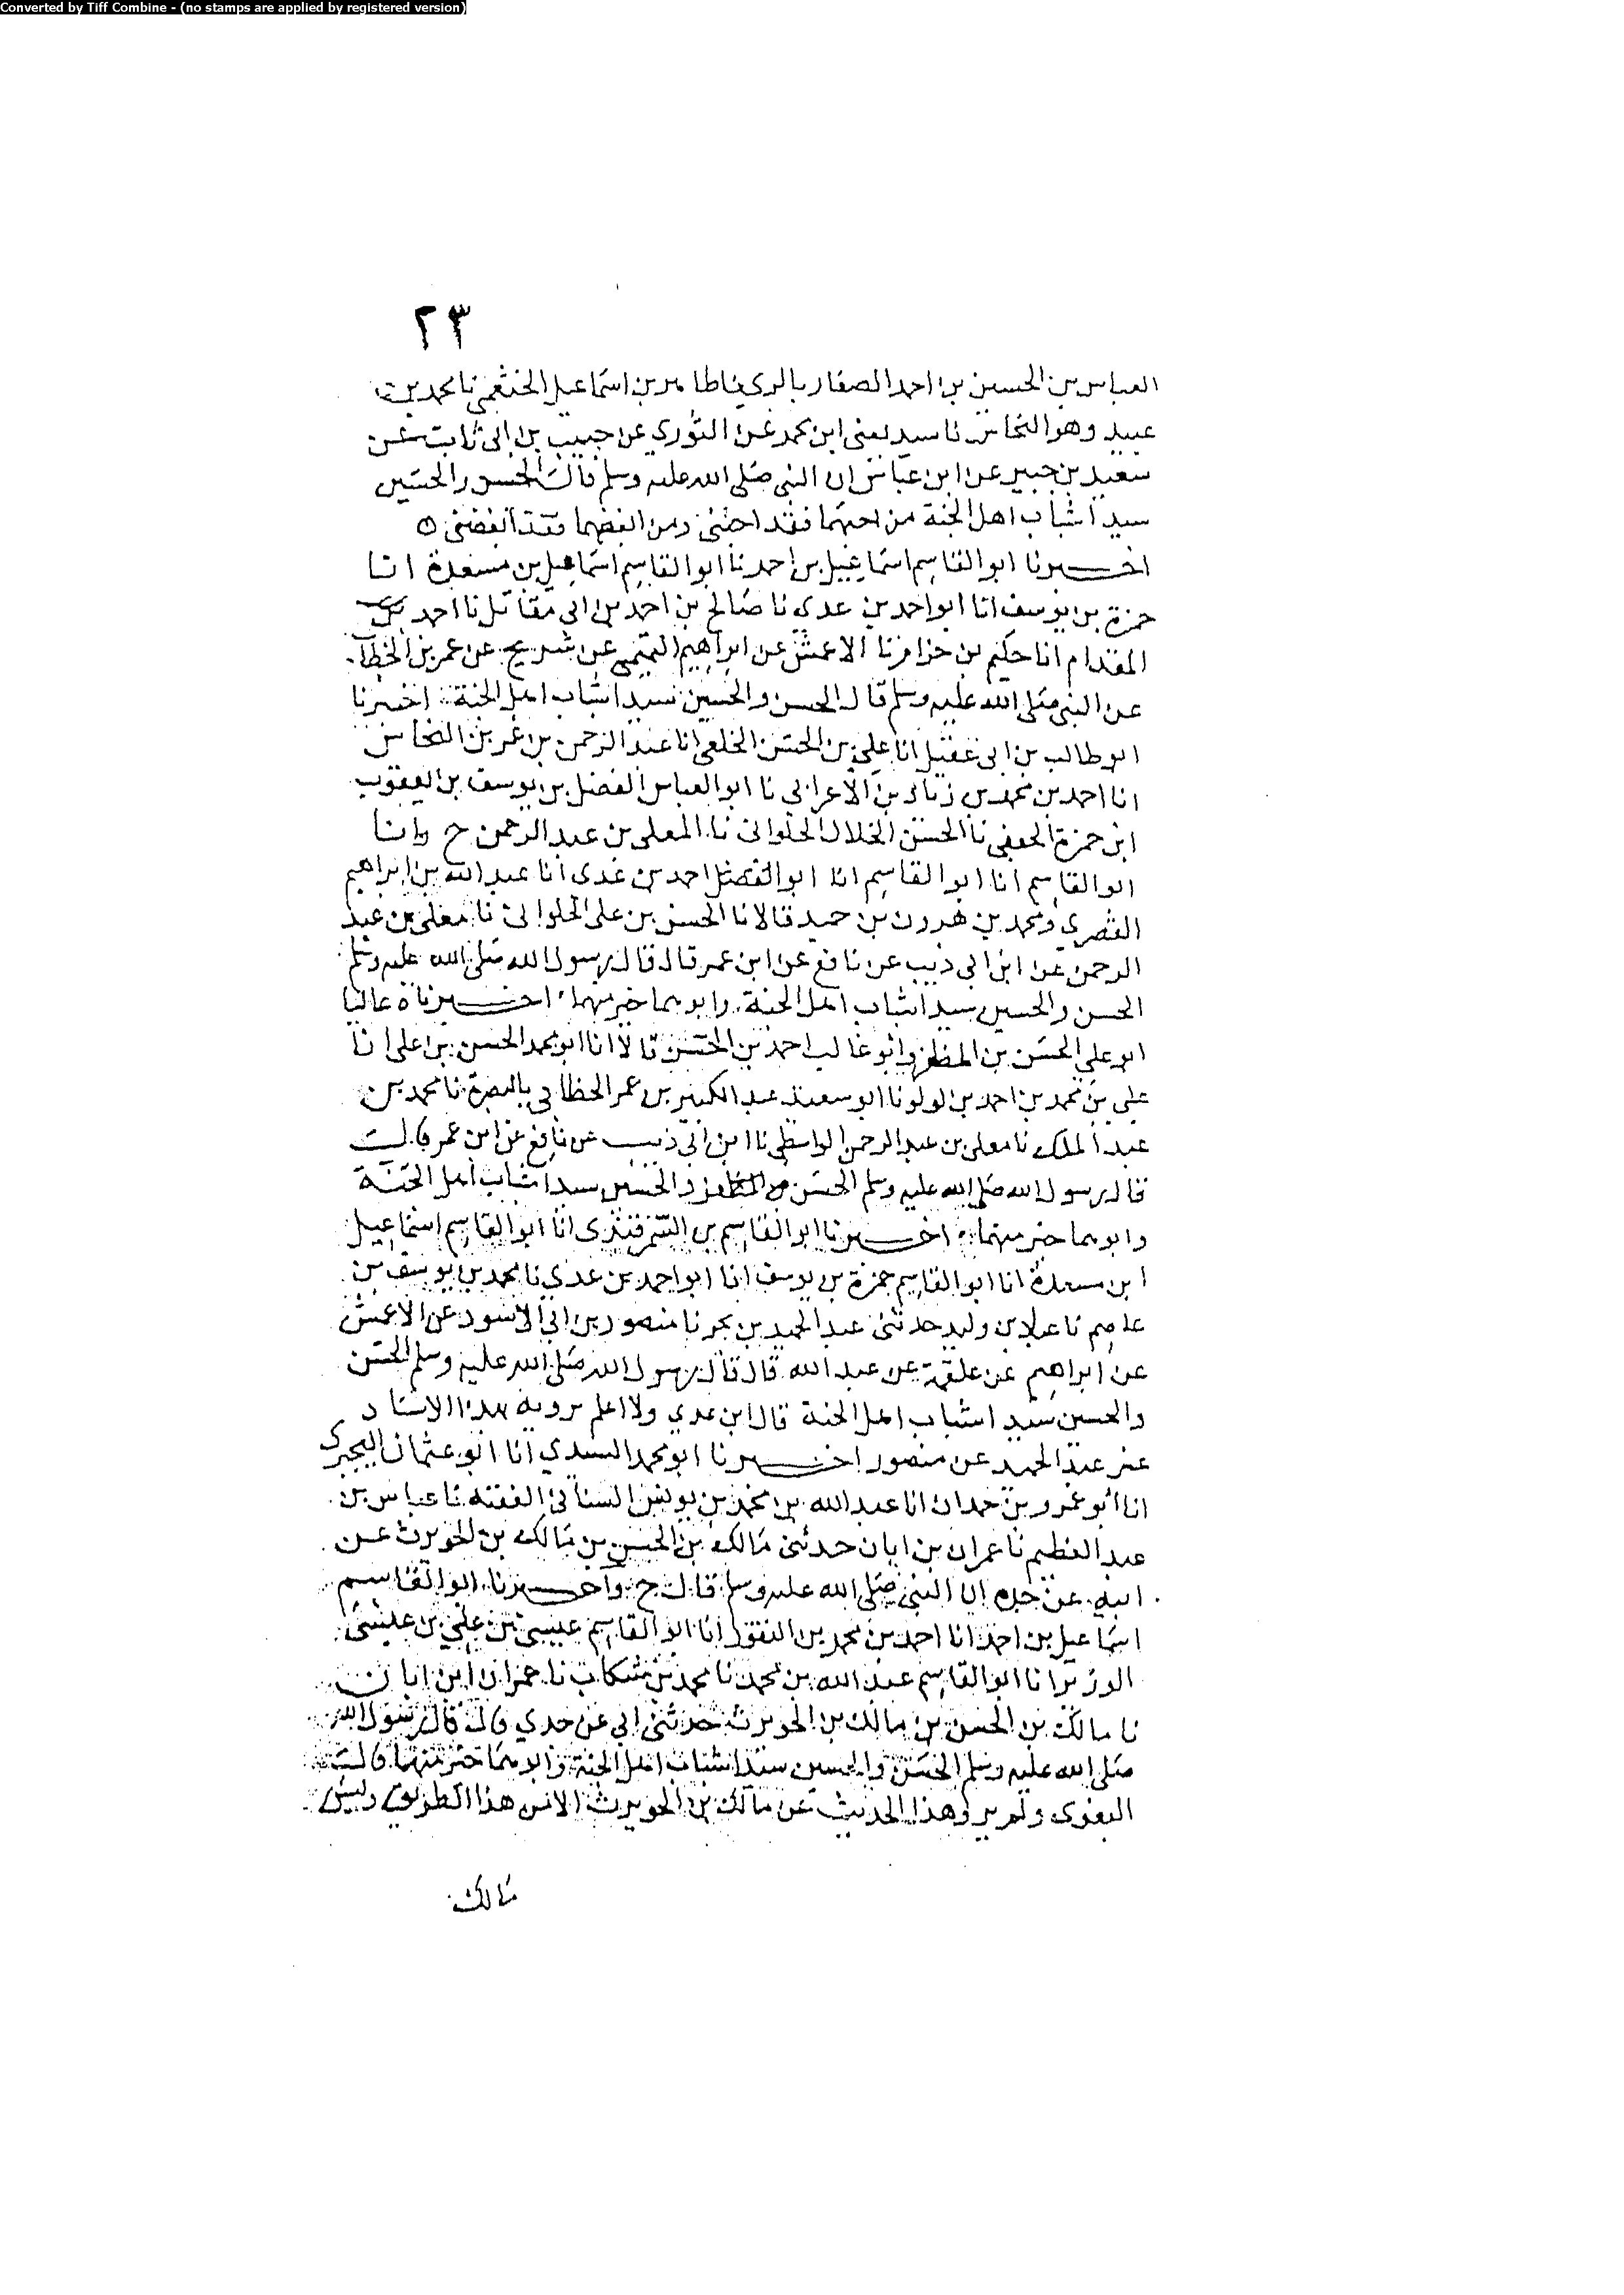 Converted by Tiff Combine - (no stamps are applied by registered version)
٢٣
العباس بن الحسين بن احمد الصفار بالري نا طاهر بن اسماعيل الخثعمي نا محمد بن
عبيد وهو النحاس نا سيف يعني ابن محمد عن الثوري عن حبيب بن ابي ثابت عن
سعيد بن جبير عن ابن عباس ان النبي صلى الله عليه وسلم قال الحسن والحسين
سيدا شباب اهل الجنة من احبهما فقد احبني ومن ابغضهما فقد ابغضني ه
اخبرنا ابو القاسم اسماعيل بن احمد نا ابو القاسم اسماعيل بن مسعدة انا
حمزة بن يوسف انا ابو احمد بن عدي نا صالح بن احمد بن ابي مقاتل نا احمد بن
المقدام انا حكيم بن حزام نا الاعمش عن ابراهيم التيمي عن شريح عن عمر بن الخطاب
عن النبي صلى الله عليه وسلم قال الحسن والحسين سيدا شباب اهل الجنة اخبرنا
ابو طالب بن ابي عقيل انا علي بن الحسن الخلعي انا عبد الرحمن بن عمر بن النحاس
انا احمد بن محمد بن زياد بن الاعرابي نا ابو العباس الفضل بن يوسف بن يعقوب
ابن حمزة الجعفي نا الحسن الخلال الحلواني نا المعلى بن عبد الرحمن ح وانا
ابو القاسم انا ابو القاسم انا ابو الفضل احمد بن عدي انا عبد الله بن ابراهيم
القصري ومحمد بن هرون بن حميد قالا نا الحسن بن علي الحلواني نا معلى بن عبد
الرحمن عن ابن ابي ذيب عن نافع عن ابن عمر قال قال رسول الله صلى الله عليه وسلم
الحسن والحسين سيدا شباب اهل الجنة وابوهما خير منهما اخبرناه عاليا
ابو علي الحسن بن المظفر وابو غالب احمد بن الحسن قالا انا ابو محمد الحسن بن علي انا
علي بن محمد بن احمد بن لولو نا ابو سعيد عبد الكبير بن عمر الخطابي بالبصرة نا محمد بن
عبد الملك نا معلى بن عبد الرحمن الواسطي نا ابن ابي ذيب عن نافع عن ابن عمر قال
قال رسول الله صلى الله عليه وسلم الحسن والحسين سيدا شباب اهل الجنة
وابوهما خير منهما اخبرنا ابو القاسم بن السمرقندي انا ابو القاسم اسماعيل
ابن مسعدة انا ابو القاسم حمزة بن يوسف انا ابو احمد بن عدي نا محمد بن يوسف بن
عاصم نا وليد حدثني عبد الحميد بن بحر نا منصور بن ابي الاسود عن الاعمش
عن ابراهيم عن علقمة عن عبد الله قال قال رسول الله صلى الله عليه وسلم الحسن
والحسين سيدا شباب اهل الجنة قال ابن عدي ولا اعلم يرويه بهذا الاسناد
غير عبد الحميد عن منصور اخبرنا ابو محمد السيدي انا ابو عثمان البحيري
انا ابو عمرو بن حمدان انا عبد الله بن محمد بن يونس السناني الفقيه نا عباس بن
عبد العظيم نا عمران بن ابان حدثني مالك بن الحسن بن مالك بن الحويرث عن
ابيه عن جده ان النبي صلى الله عليه وسلم قال ح واخبرنا ابو القاسم
اسماعيل بن احمد انا احمد بن محمد بن النقور انا ابو القاسم عيسى بن علي بن عيسى
الوزير انا ابو القاسم عبد الله بن محمد نا محمد بن شكاب نا عمران ابن ابان
نا مالك بن الحسن بن مالك بن الحويرث حدثني ابي عن جدي قال قال رسول الله
صلى الله عليه وسلم الحسن والحسين سيدا شباب اهل الجنة وابوهما خير منهما قال
البغوي ولم يرو هذا الحديث عن مالك بن الحويرث الا من هذا الطريق وليس
مالك